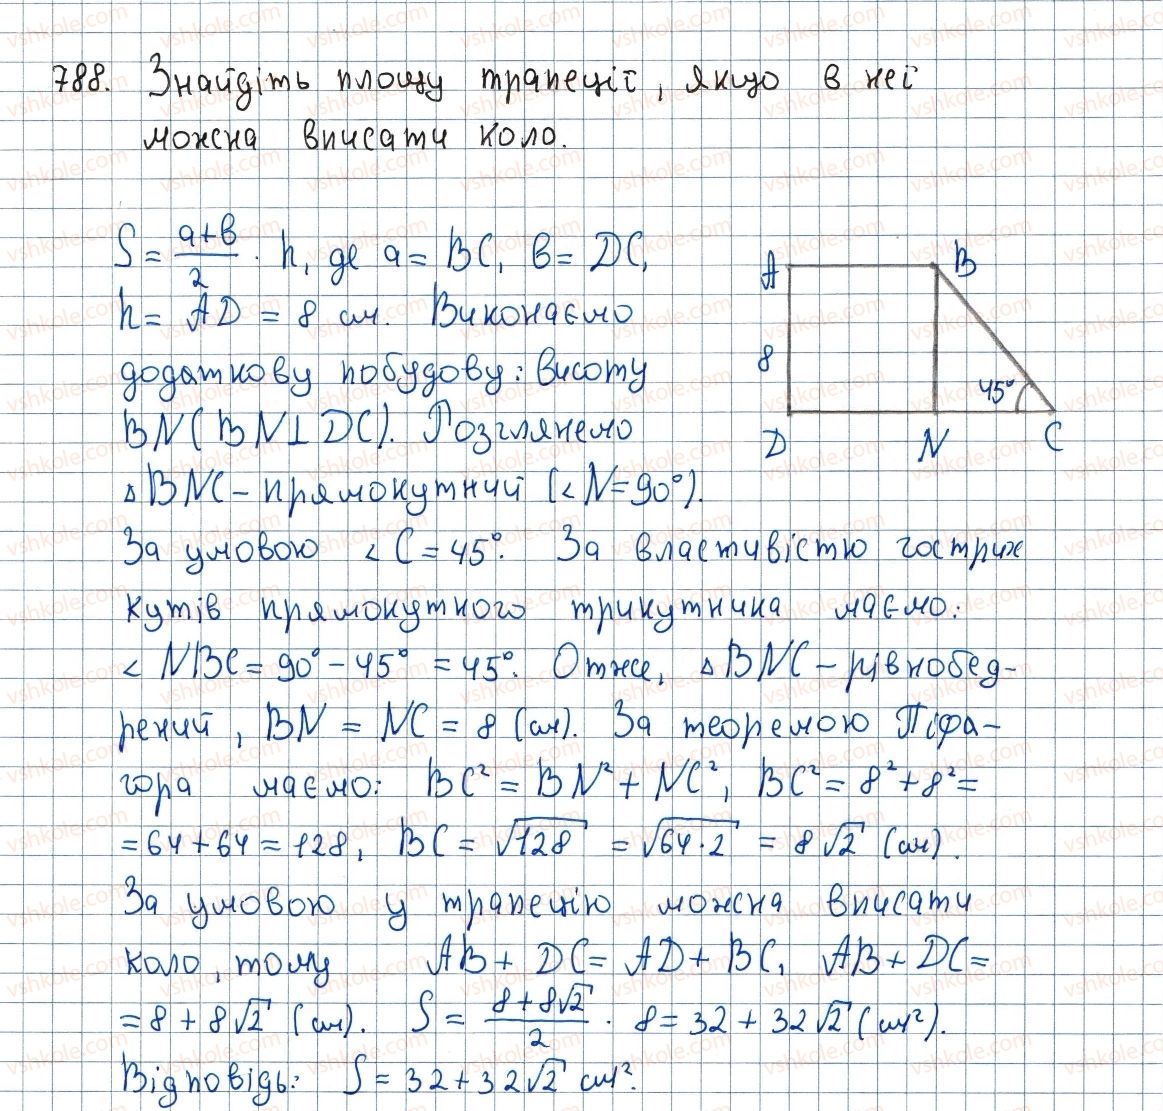 788. Знайдіть площу трапеції, якщо в неї
можна вписати коло.
S = a+b/2 · h, де a = BC, b = DC,
h = AD = 8 см. Виконаємо
додаткову побудову: висоту
BN (BN⊥DC). Розглянемо
△BNC – прямокутний (∠N=90°).
За умовою ∠C = 45°. За властивістю гострих
кутів прямокутного трикутника маємо:
∠NBC = 90° – 45° = 45°. Отже, △BNC – рівнобед-
рений, BN = NC = 8 (см). За теоремою Піфа-
гора маємо: BC² = BN² + NC², BC² = 8² + 8² =
= 64 + 64 = 128, BC = √128 = √64·2 = 8√2 (см).
За умовою у трапецію можна вписати
коло, тому AB + DC = AD + BC, AB + DC =
= 8 + 8√2 (см). S = 8+8√2/2 · 8 = 32 + 32√2 (см²).
Відповідь: S = 32 + 32√2 см².
A B
8
45°
D N C